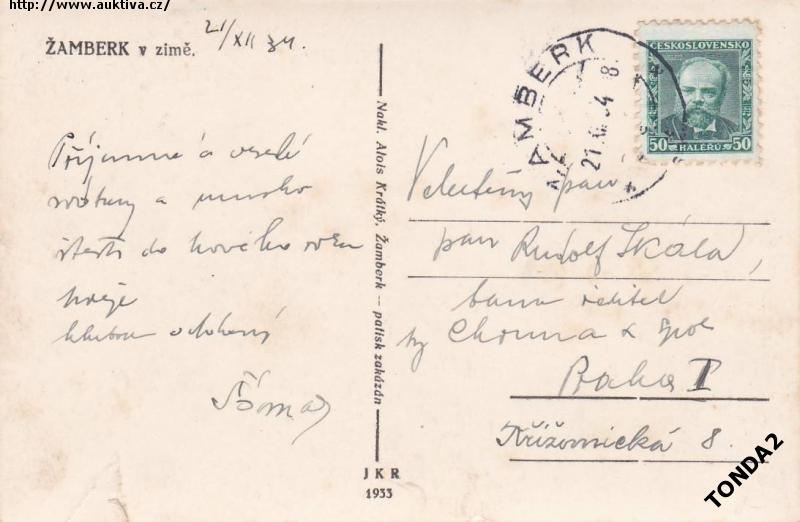 http://www.auktiva.cz/
21/XII 34.
ŽAMBERK v zimě.
Příjemné a veselé
svátky a mnoho
štěstí do nového roku
přeje
hluboce oddaný
Nakl. Alois Krátký, Žamberk — patisk zakázán
JKR
1933
AMBERK
ČESKOSLOVENSKO
50 HALÉŘŮ 50
Velectěný pan
pan Rudolf Skála,
banu ředitel
Chrma & spol
Praha I
Křižovnická 8.
TONDA2